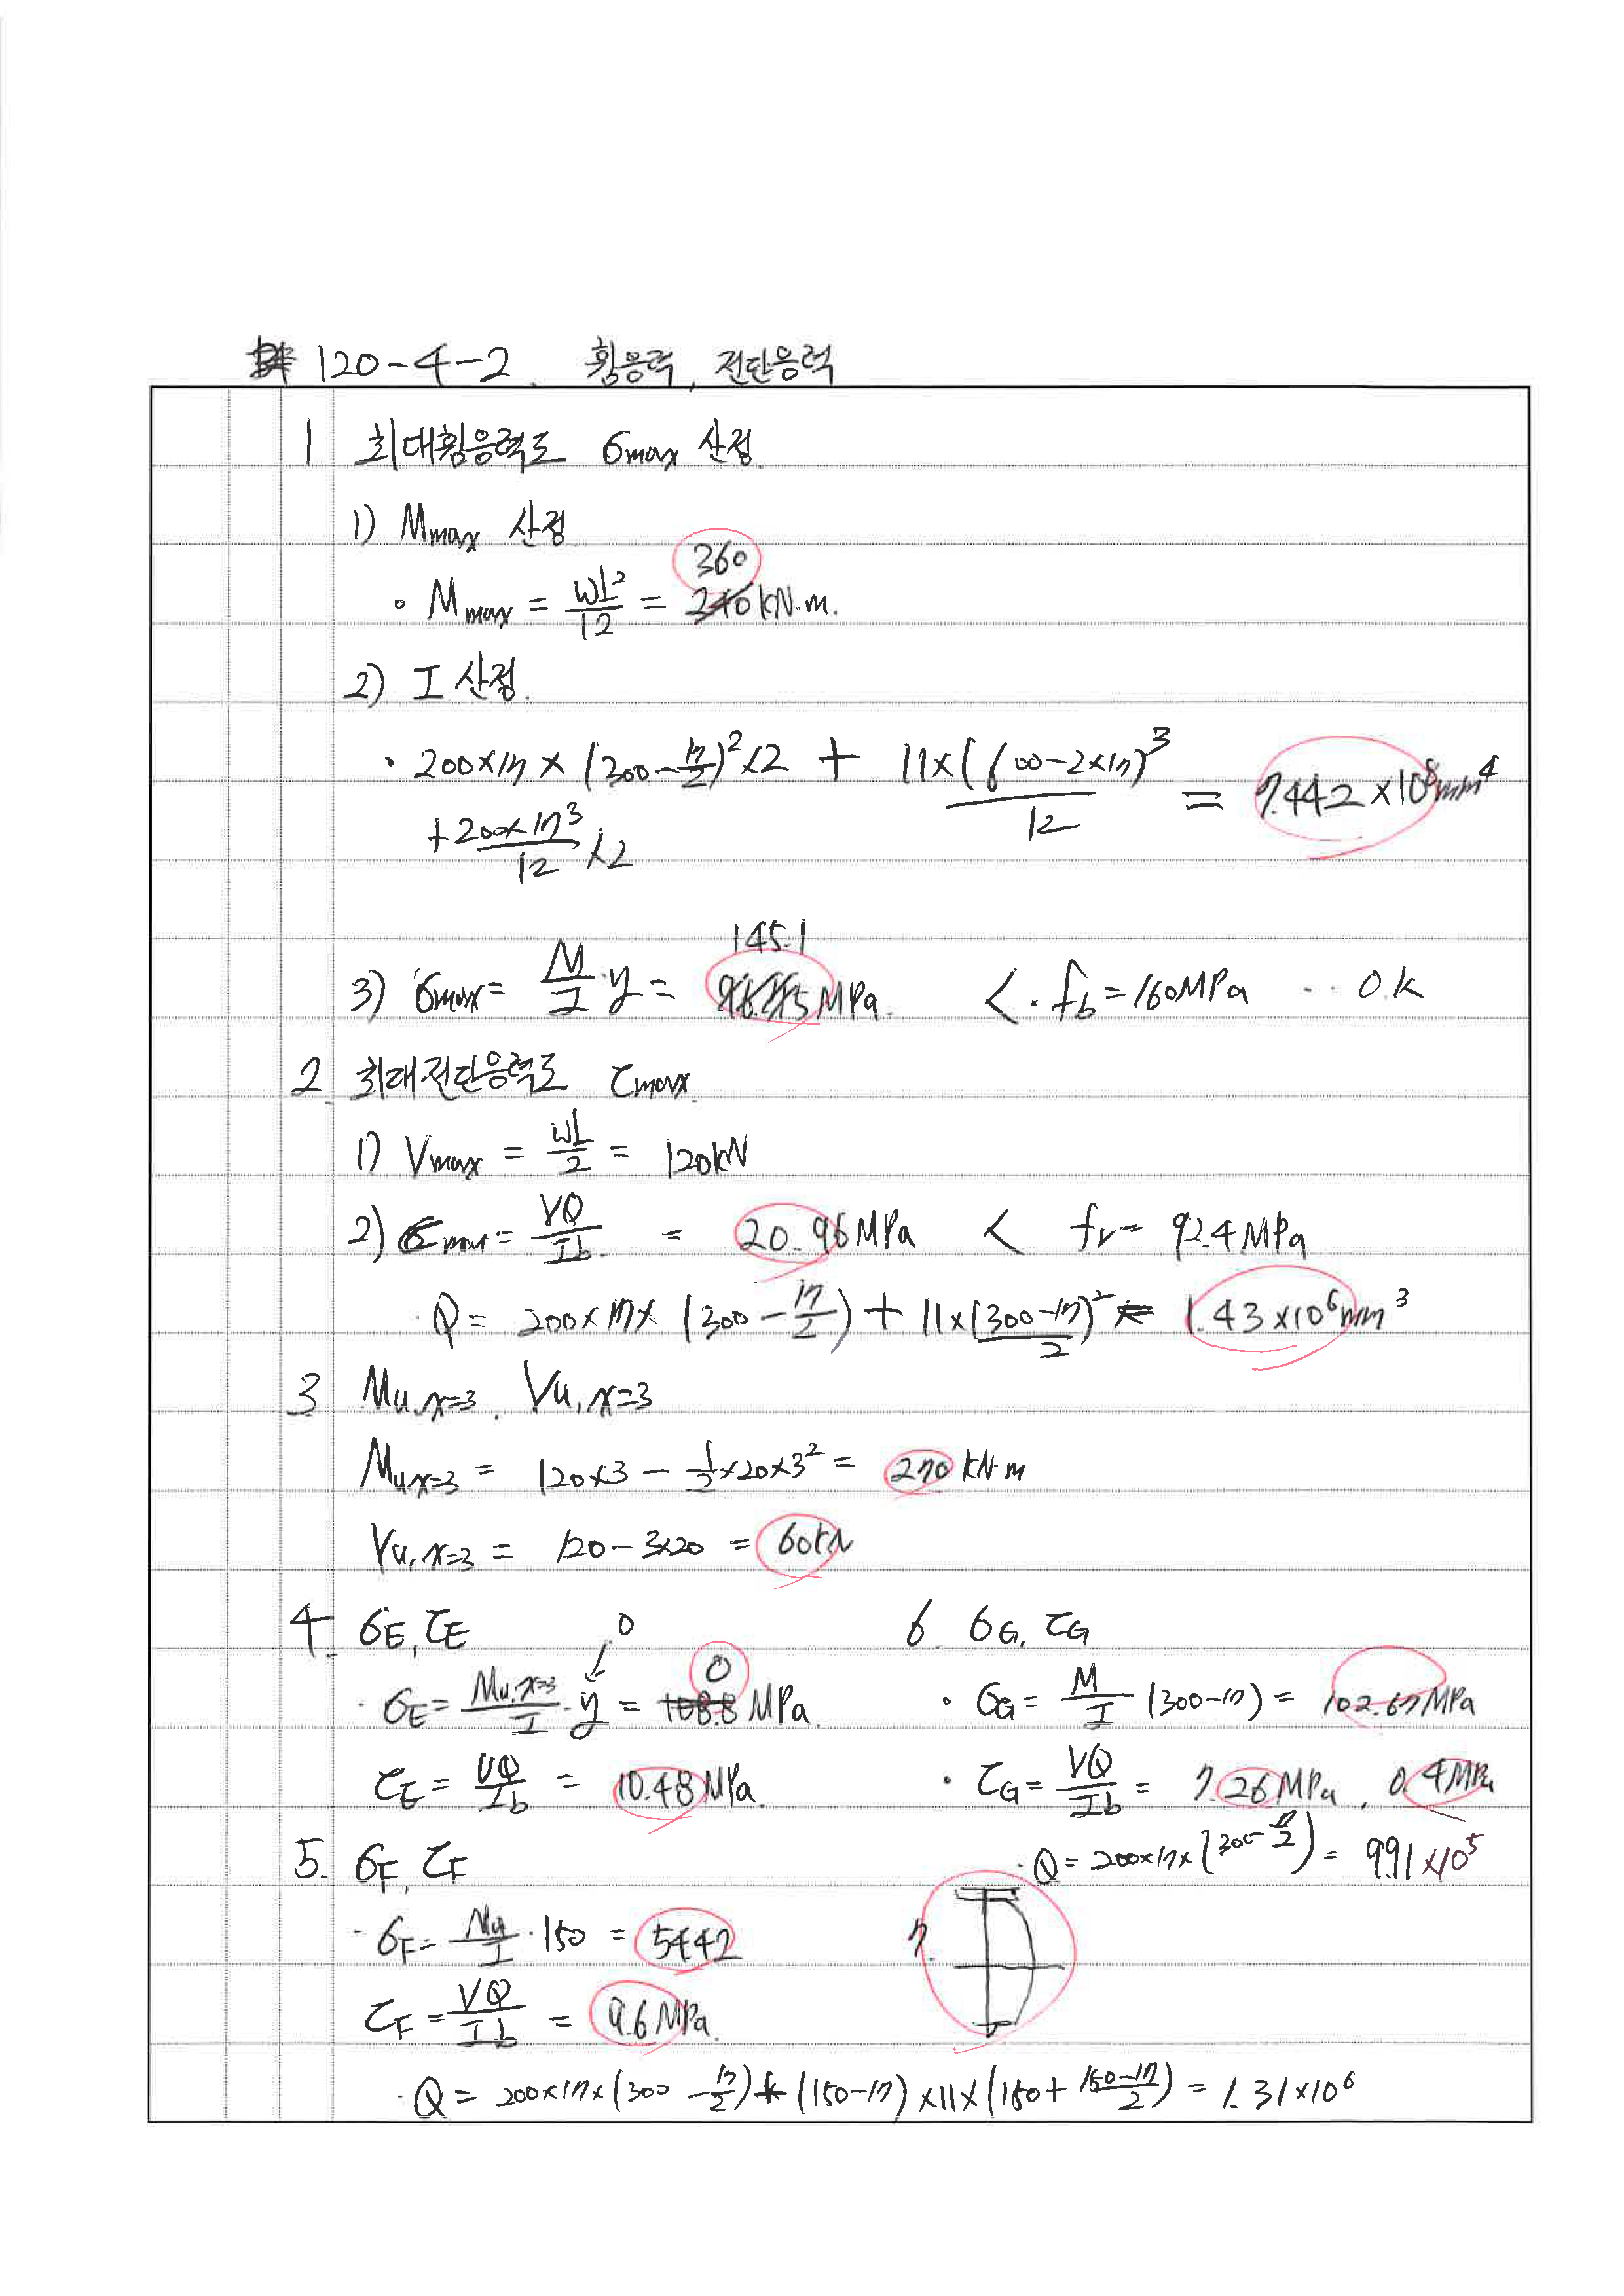 120-4-2. 휨응력, 전단응력
1 최대휨응력도 σmax 산정.
1) Mmax 산정
360
• Mmax = wL²/12 = 240 kN·m.
2) I 산정.
· 200×17×(300-17/2)²×2 + 11×(600-2×17)³/12 = 7.442×10⁸mm⁴
+ 200×17³/12 ×2
145.1
3) σmax = M/I·y = MPa. < · fb=160MPa ·· O.K
2. 최대전단응력도 τmax.
1) Vmax = wL/2 = 120kN
2) τmax = VQ/Ib = 20.96MPa < fv= 92.4MPa
· Q = 200×17×(300-17/2) + 11×(300-17)²/2 = 1.43×10⁶mm³
3 Mu,x=3, Vu,x=3
Mu,x=3 = 120×3 - 1/2×20×3² = 270 kN·m
Vu,x=3 = 120-3×20 = 60kN
4. σE, τE
0
0
· σE = Mu,x=3/I · y = 108.8 MPa.
τE = VQ/Ib = 10.48MPa.
5. σF, τF
- σF = Mu/I · 150 = 54.42
τF = VQ/Ib = 9.6MPa.
· Q = 200×17×(300-17/2)+(150-17)×11×(150+(150-17)/2) = 1.31×10⁶
6. σG, τG
· σG = M/I (300-17) = 102.67MPa
· τG = VQ/Ib = 7.26MPa, 0.4MPa
· Q = 200×17×(300-17/2) = 9.91×10⁵
7.